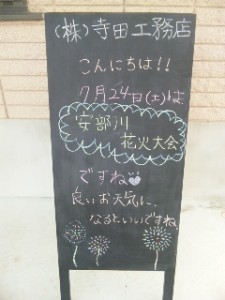 (株)寺田工務店
こんにちは!!
7月24日(土)は
安部川
花火大会
ですね
良いお天気に、
なるといいですね